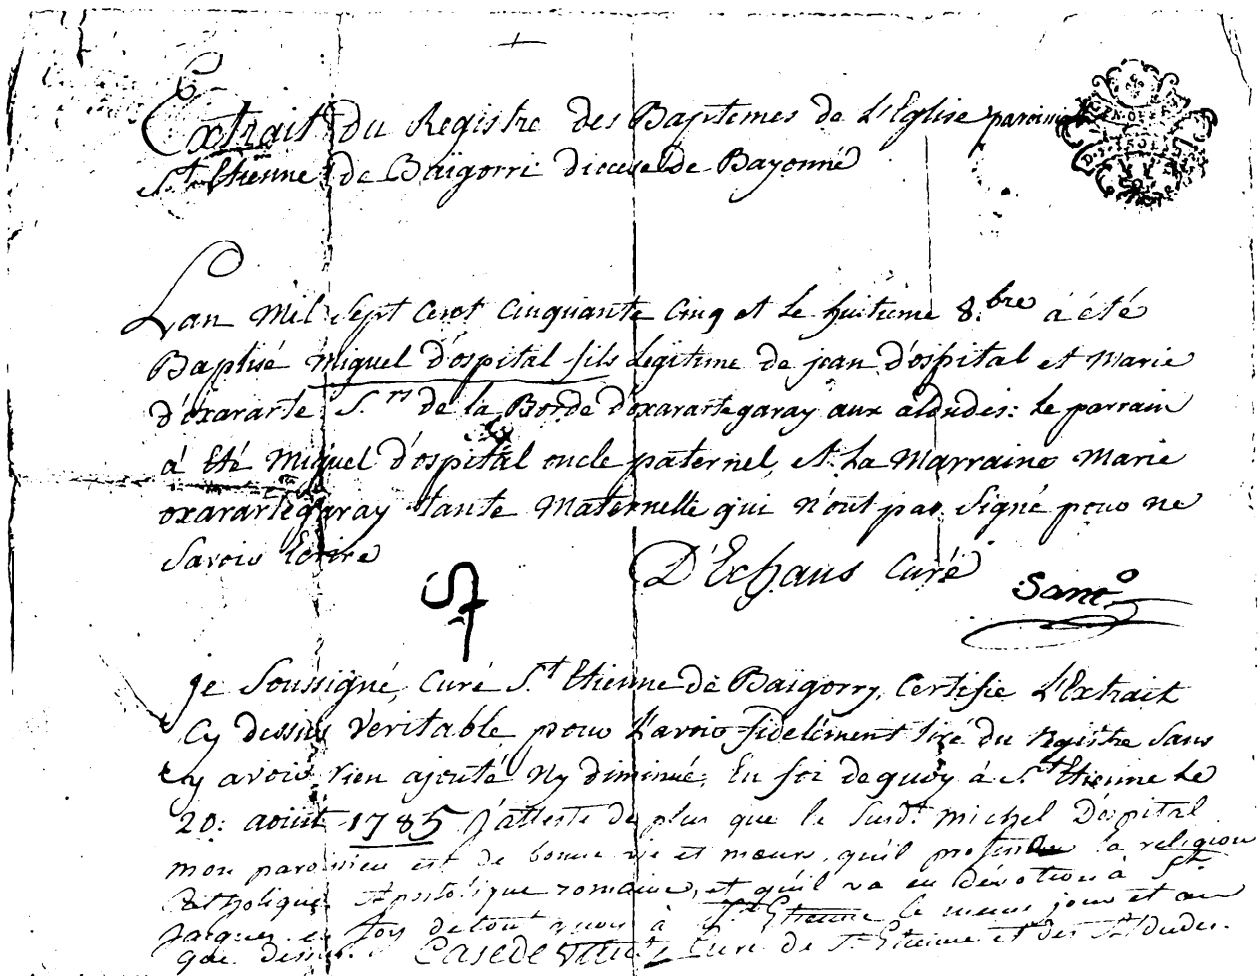 Extrait du Registre des Baptemes de L'Eglise
St. Etienne de Baïgorri diocese de Bayonne
Lan Mil Sept Cent Cinquante Cinq et le huitieme 8.bre à été
Baptisé Miguel d'ospital fils Legitime de jean d'ospital et Marie
d'oxararte S.rs de la Borde d'oxarartegaray aux aldudes: le parrain
á Eté Miguel d'ospital oncle paternel, et La Marraine Marie
oxarartegaray tante Maternelle qui n'ont pas signé pour ne
Savoir Ecrire
D'Echaus Curé
je Soussigné, Curé S.t Etienne de Baïgorry, Certifie L'Extrait
Cy dessus veritable pour L'avoir fidelément tiré du Registre Sans
y avoir rien ajouté Ny diminué. En foi de quoy à S.t Etienne Le
20: aoüt 1785 J'atteste de plus que le Susd.t michel Dospital
mon paroissien est de bonne vie et mœurs, qu'il professe la religion
Catholique Apostolique romaine, et qu'il va en dévotion à S.t
Jacques en foy de tout quoi à S.t Etienne le meme jour et an
que dessus. Curé de S.t Etienne et des Aldudes.